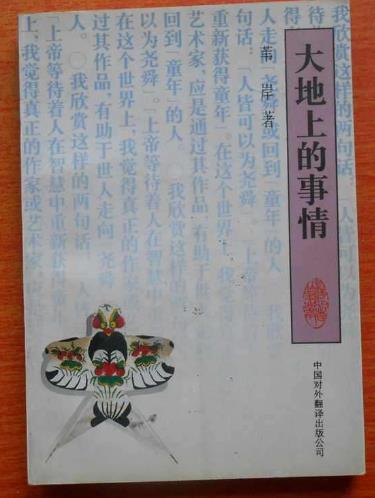 大地上的事情
苇岸 著
中国对外翻译出版公司
我欣赏这样的两句话,「人皆可以为
句话,「人皆可以为尧舜」「上帝
重新获得童年」。在这个世界
艺术家,应是通过其作品,有助于世
回到「童年」的人。〇我欣赏这样的
以为尧舜」,「上帝等待着人在智慧中
在这个世界上,我觉得真正的作
过其作品,有助于世人走向「尧舜」
人。〇我欣赏这样的两句话,「人
「上帝等待着人在智慧中重新获
上,我觉得真正的作家或艺术家,应